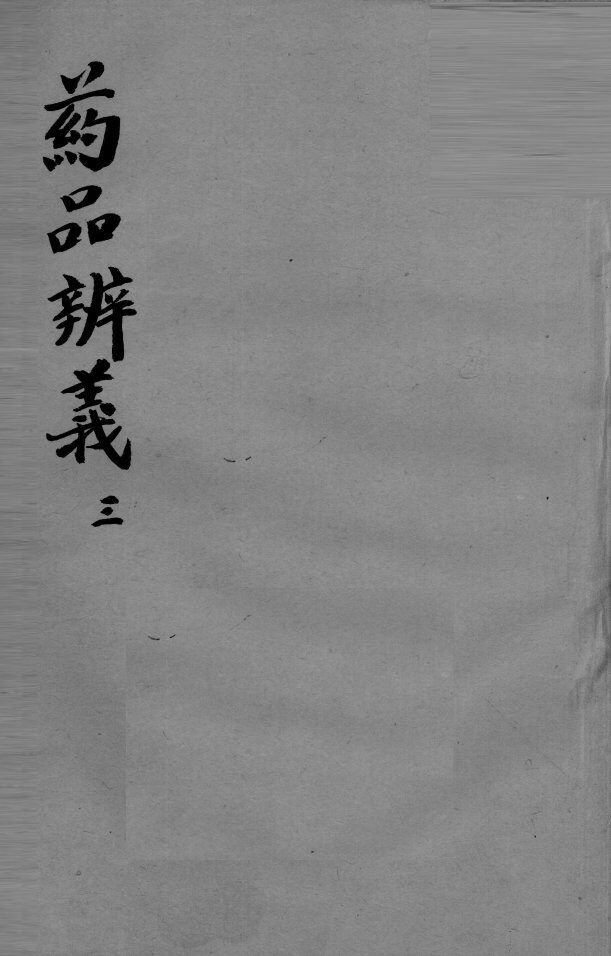 葯品辨義 三